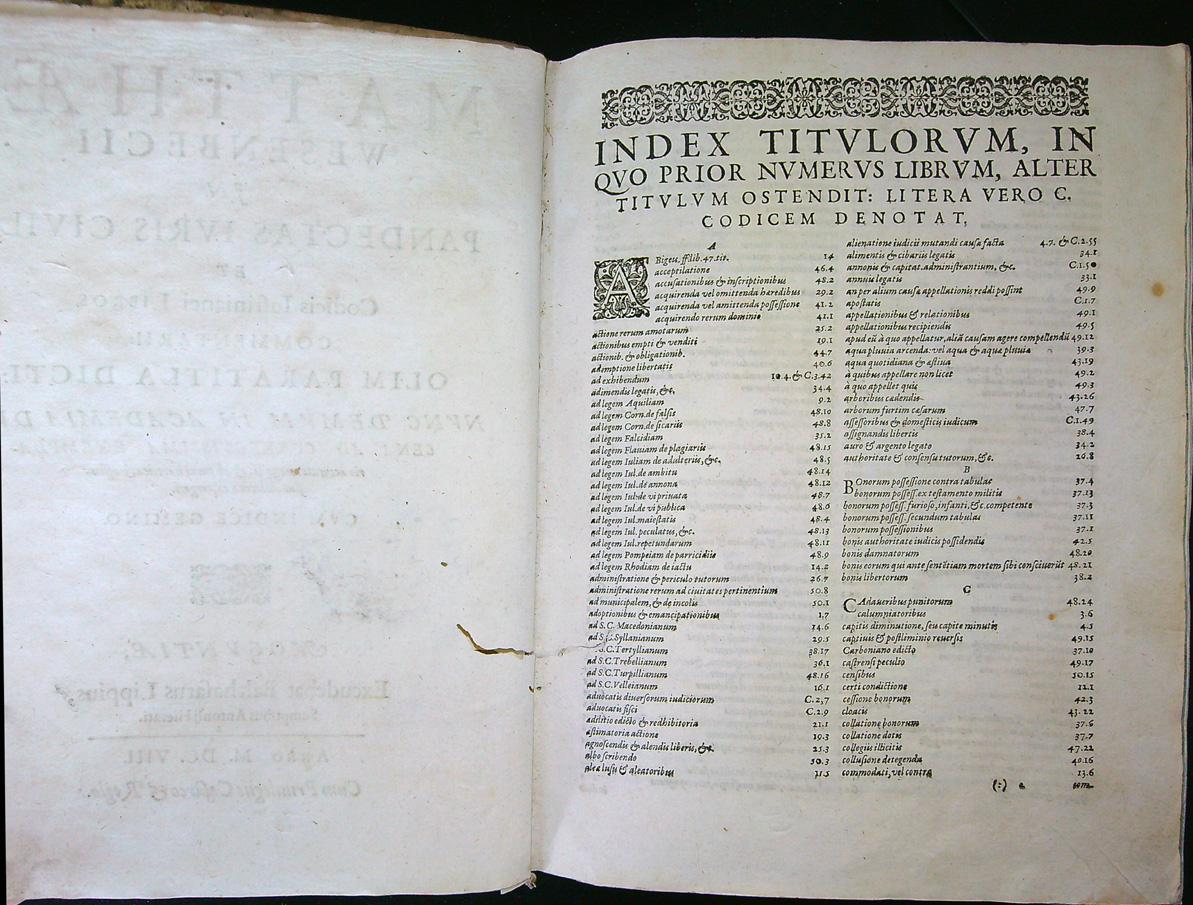 INDEX TITVLORVM, IN
QVO PRIOR NVMERVS LIBRVM, ALTER
TITVLVM OSTENDIT: LITERA VERO C.
CODICEM DENOTAT,
A
ABigeis, ff. lib. 47. tit. 14
acceptilatione 46.4
accusationibus & inscriptionibus 48.2
acquirenda vel omittenda hæredibus 29.2
acquirenda vel amittenda possessione 41.2
acquirendo rerum dominio 41.1
actione rerum amotarum 25.2
actionibus empti & venditi 19.1
actionib. & obligationib. 44.7
ademptione libertatis 40.6
ad exhibendum 10.4. & C.3.42
adimendis legatis, &c. 34.4
ad legem Aquiliam 9.2
ad legem Corn. de falsis 48.10
ad legem Corn. de sicariis 48.8
ad legem Falcidiam 35.2
ad legem Flauiam de plagiariis 48.15
ad legem Iuliam de adulteriis, &c. 48.5
ad legem Iul. de ambitu 48.14
ad legem Iul. de annona 48.12
ad legem Iul. de vi priuata 48.7
ad legem Iul. de vi publica 48.6
ad legem Iul. maiestatis 48.4
ad legem Iul. peculatus, &c. 48.13
ad legem Iul. repetundarum 48.11
ad legem Pompeiam de parricidiis 48.9
ad legem Rhodiam de iactu 14.2
administratione & periculo tutorum 26.7
administratione rerum ad ciuitates pertinentium 50.8
ad municipalem, & de incolis 50.1
adoptionibus & emancipationibus 1.7
ad S.C. Macedonianum 14.6
ad S.C. Syllanianum 29.5
ad S.C. Tertyllianum 38.17
ad S.C. Trebellianum 36.1
ad S.C. Turpillianum 48.16
ad S.C. Velleianum 16.1
aduocatis diuersorum iudiciorum C.2,7
aduocatis fisci C.2.9
ædilitio edicto & redhibitoria 21.1
æstimatoria actione 19.3
agnoscendis & alendis liberis, &c. 25.3
albo scribendo 50.3
alea lusu & aleatoribus 11.5
alienatione iudicii mutandi causa facta 4.7. & C.2.55
alimentis & cibariis legatis 34.1
annonis & capitat. administrantium, &c. C.1.5
annuis legatis 33.1
an per alium causæ appellationis reddi possint 49.9
apostatis C.1.7
appellationibus & relationibus 49.1
appellationibus recipiendis 49.5
apud eũ à quo appellatur, aliã causam agere compellendũ 49.12
aqua pluuia arcenda: vel aqua & aquæ pluuiæ 39.3
aqua quotidiana & æstiua 43.19
à quibus appellare non licet 49.2
à quo appelletur quis 49.3
arboribus cædendis 43.26
arborum furtim cæsarum 47.7
assessoribus & domesticis iudicum C.1.49
assignandis libertis 38.4
auro & argento legato 34.2
authoritate & consensu tutorum, &c. 26.8
B
BOnorum possessione contra tabulas 37.4
bonorum possess. ex testamento militis 37.13
bonorum possess. furioso, infanti, &c. competente 37.3
bonorum possess. secundum tabulas 37.11
bonorum possessionibus 37.1
bonis authoritate iudicis possidendis 42.5
bonis damnatorum 48.20
bonis eorum qui ante sentẽtiam mortem sibi consciuerũt 48.21
bonis libertorum 38.2
C
CAdaueribus punitorum 48.24
calumniatoribus 3.6
capitis diminutione, seu capite minutis 4.5
captiuis & postliminio reuersis 49.15
Carboniano edicto 37.10
castrensi peculio 49.17
censibus 50.15
certi condictione 12.1
cessione bonorum 42.3
cloacis 43.22
collatione bonorum 37.6
collatione dotis 37.7
collegiis illicitis 47.22
collusione detegenda 40.16
commodati, vel contra 13.6
(:)
com-